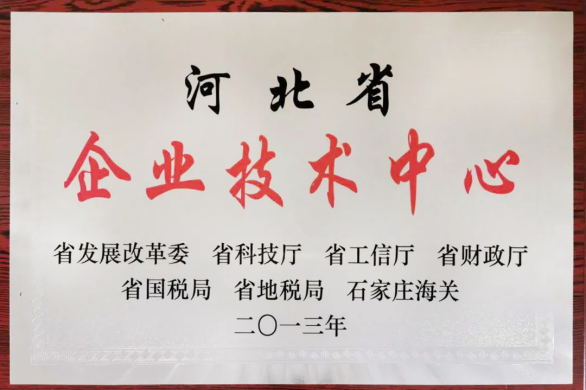 河北省
企业技术中心
省发展改革委 省科技厅 省工信厅 省财政厅
省国税局 省地税局 石家庄海关
二〇一三年